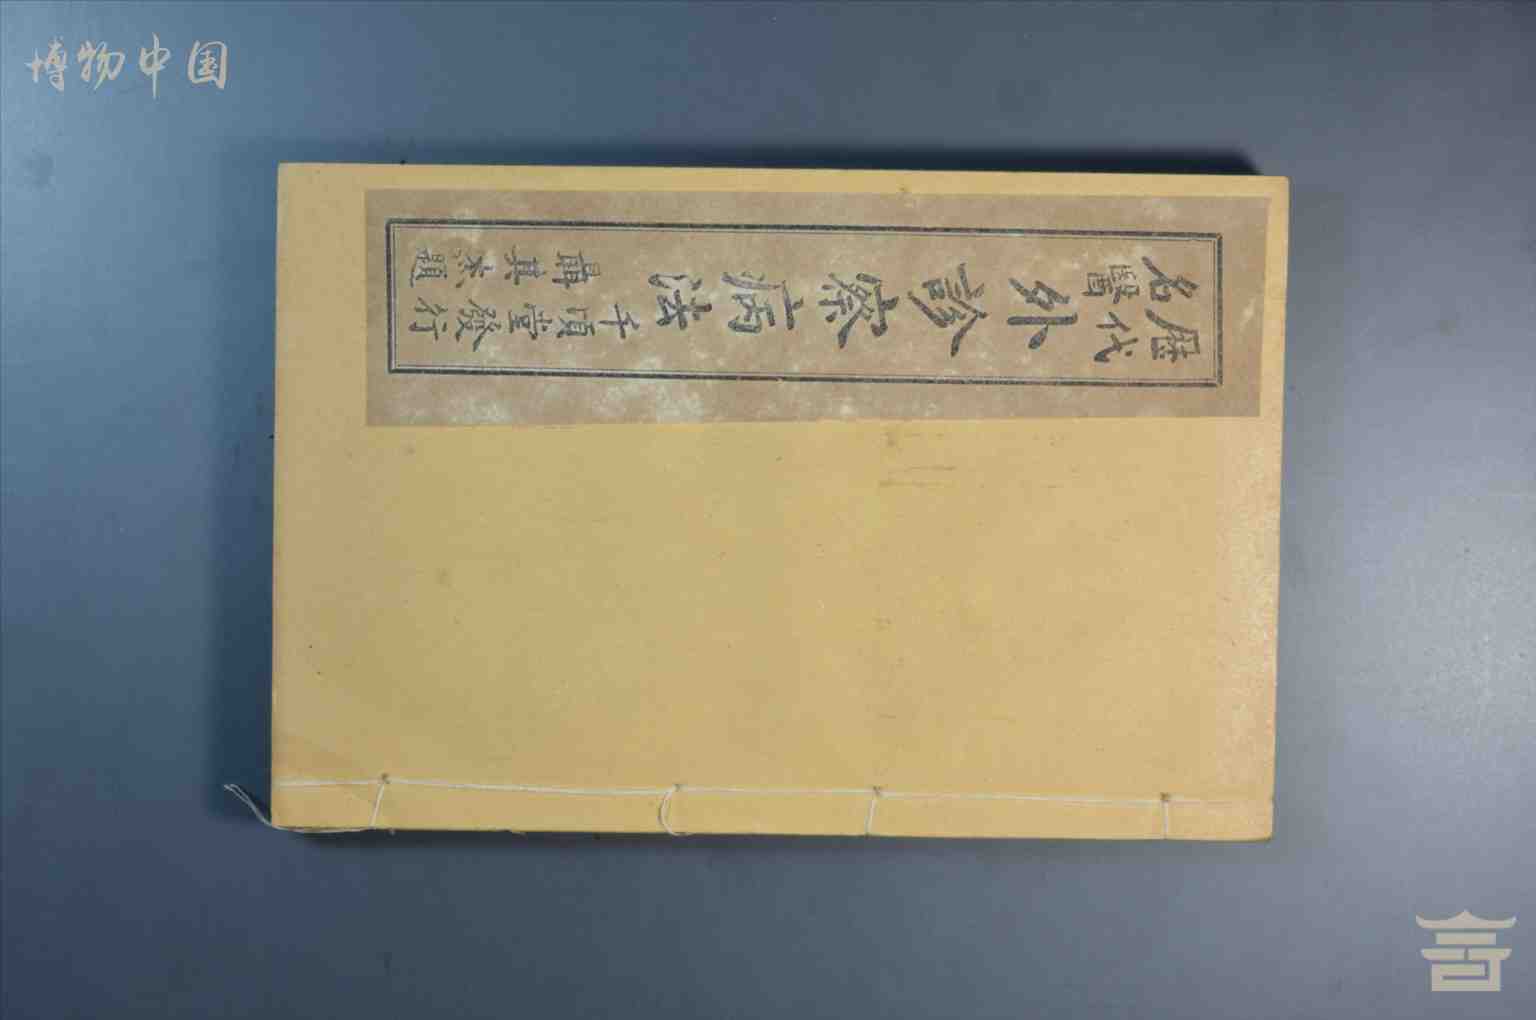 博物中国
歷代
名醫
外診察病法
千頃堂發行
聶其杰題